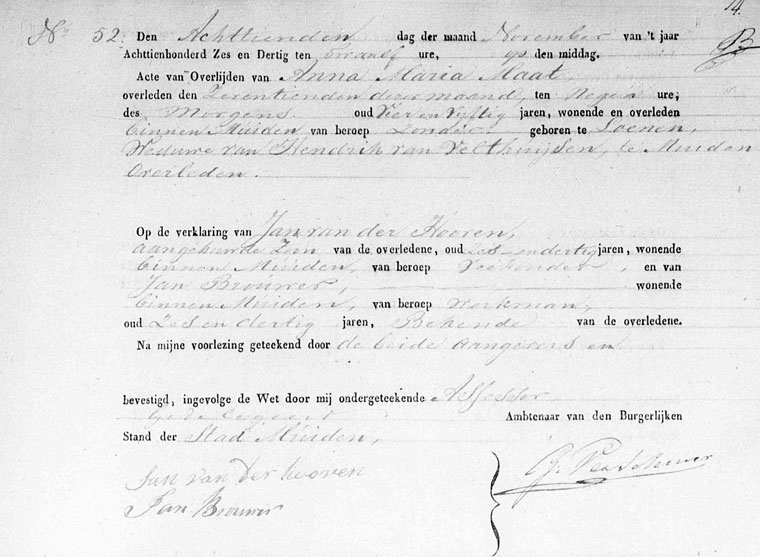 14.
No 52. Den Achttienden dag der maand November van 't jaar
Achttienhonderd Zes en Dertig ten twaalf ure, op den middag.
Acte van Overlijden van Anna Maria Maat,
overleden den Zeventienden dezer maand, ten Negen ure;
des Morgens oud Vier en Vyftig jaren, wonende en overleden
binnen Muiden van beroep Zonder geboren te Loenen,
Weduwe van Hendrik van Velthuijsen, te Muiden
Overleden.
Op de verklaring van Jan van der Hooren,
aangehuwde Zoon van de overledene, oud Zes en dertig jaren, wonende
binnen Muiden, van beroep Veehouder, en van
Jan Brouwer, wonende
binnen Muiden, van beroep Werkman,
oud Zes en dertig jaren, Bekende van de overledene.
Na mijne voorlezing geteekend door de beide Aangevers en
bevestigd, ingevolge de Wet door mij ondergeteekende Assessor
Gedelegeert Ambtenaar van den Burgerlijken
Stand der Stad Muiden,
Jan van der hooren
Jan Brouwer